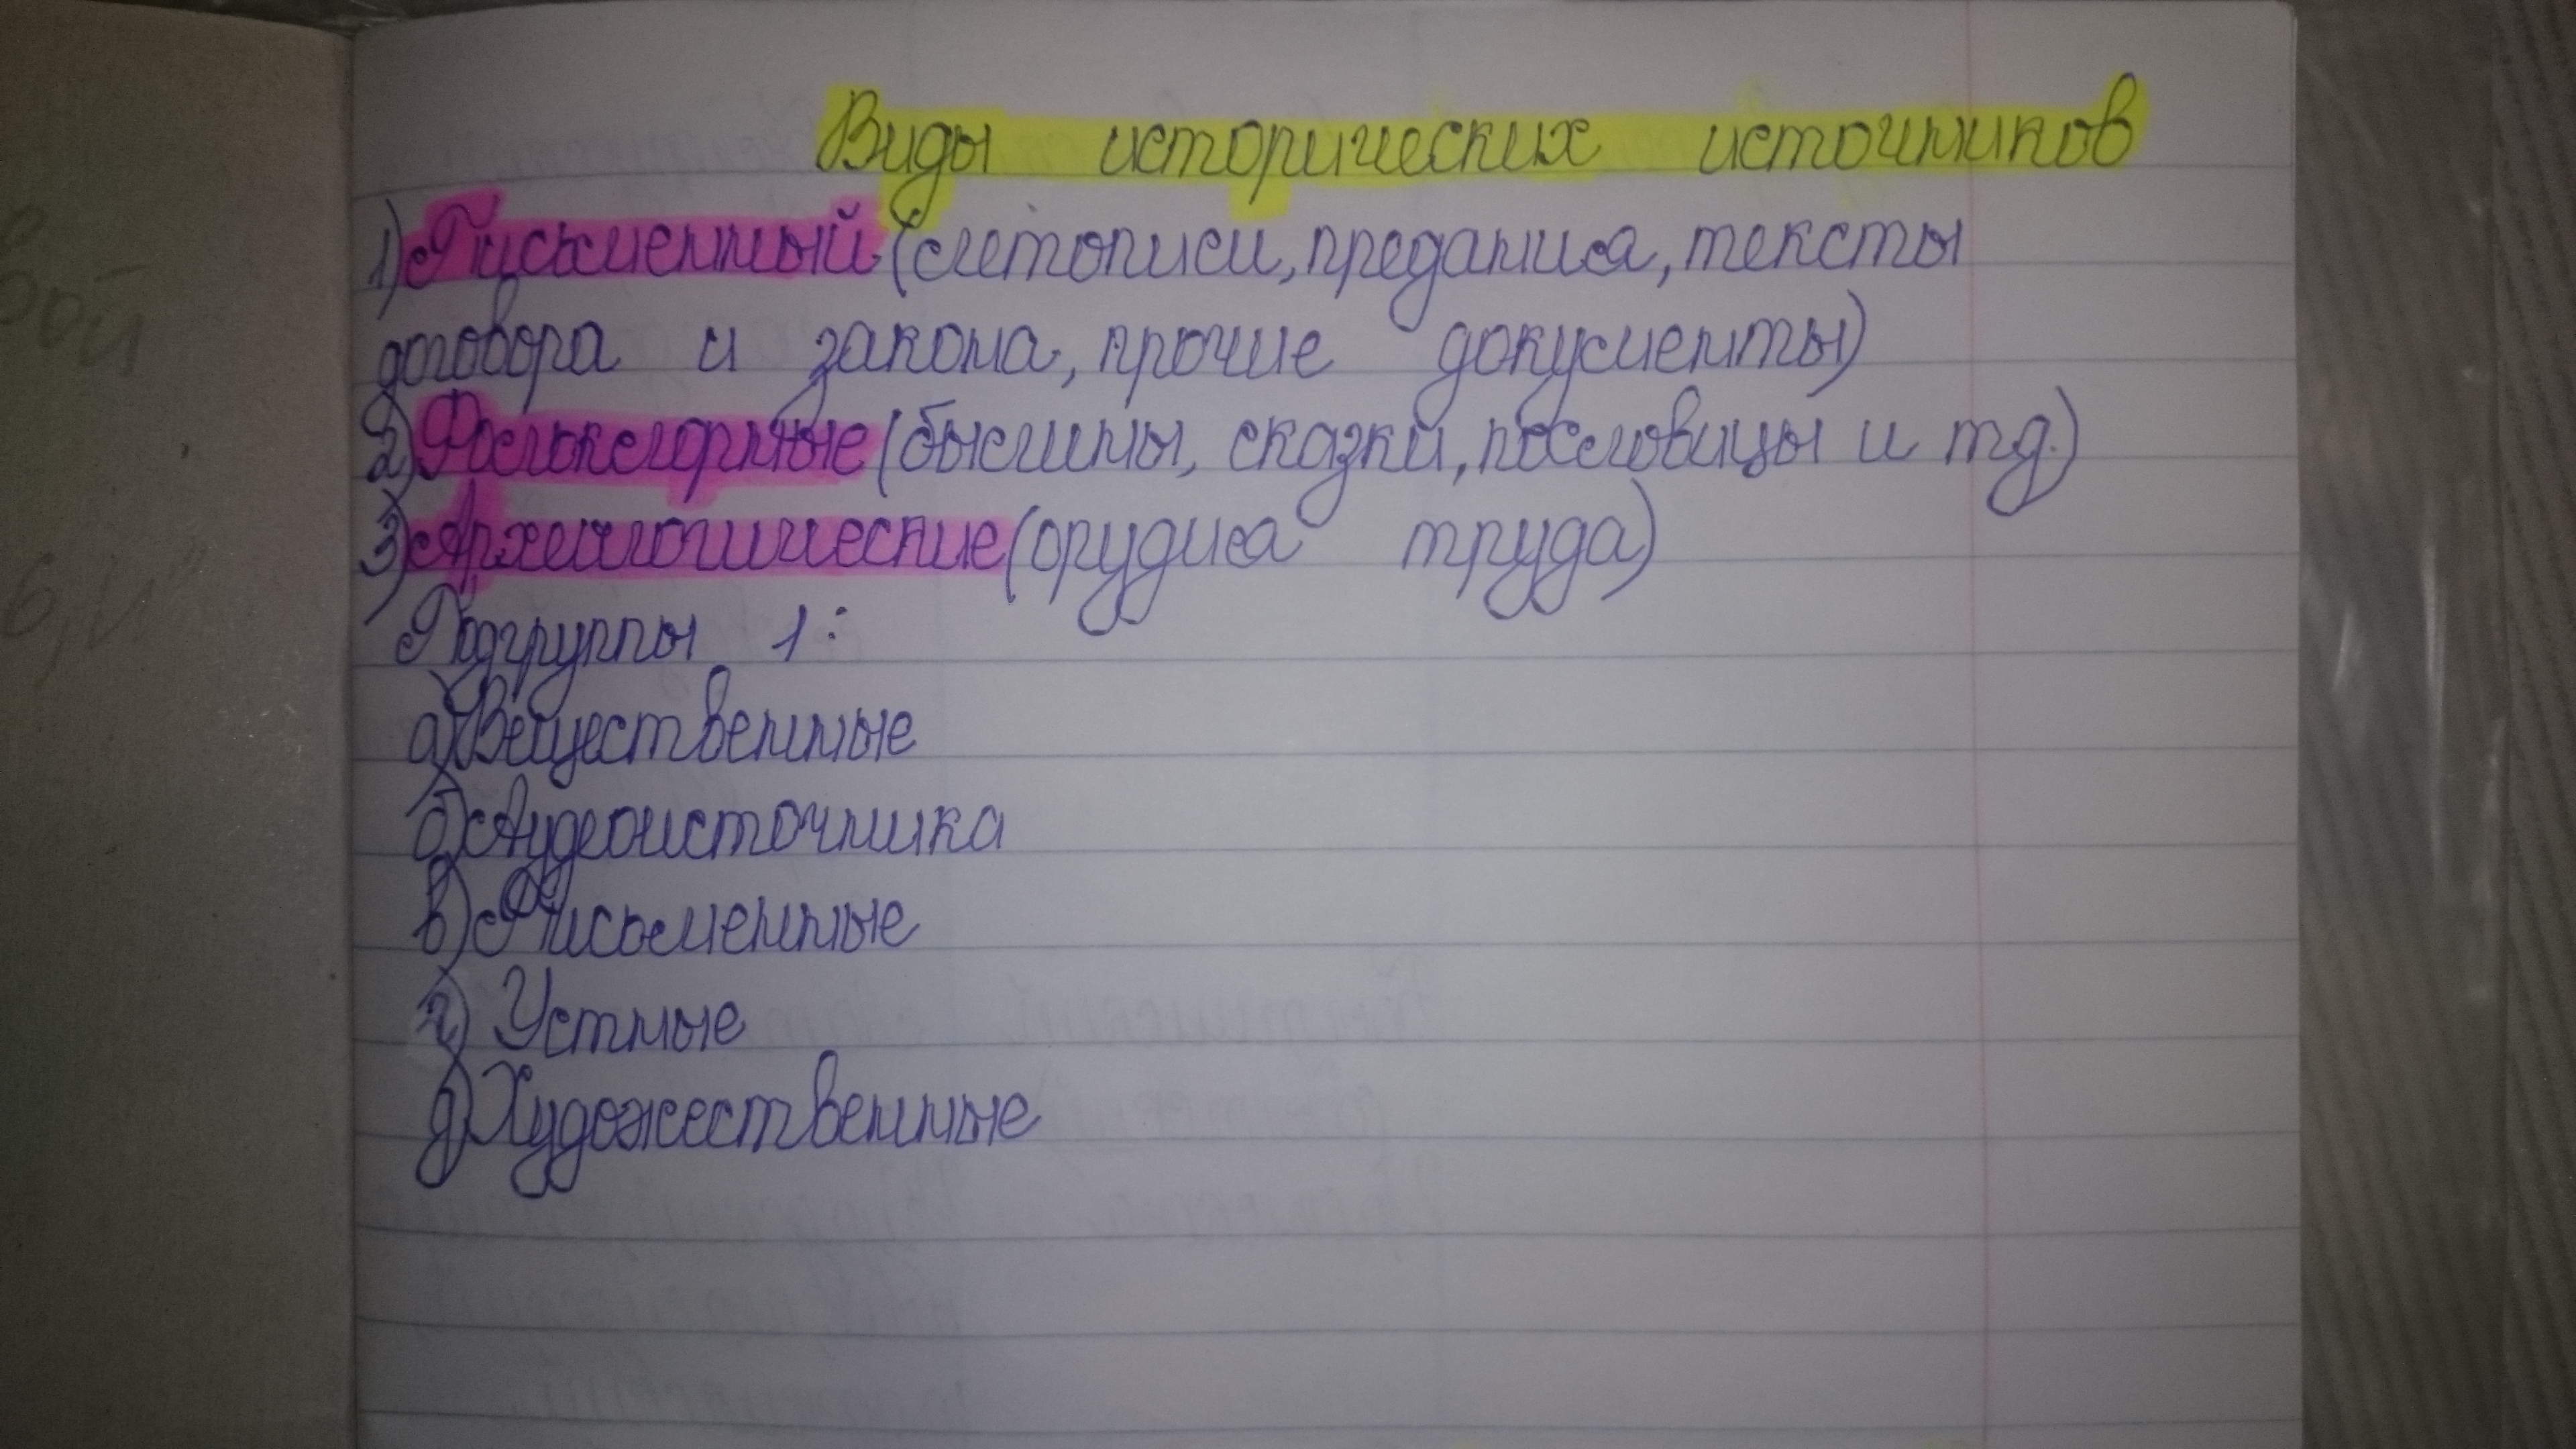 Виды исторических источников
1) Письменный (летописи, предания, тексты
договора и закона, прочие документы)
2) Фольклорные (былины, сказки, пословицы и тд.)
3) Археологические (орудия труда)
Подгруппы 1:
а) Вещественные
б) Аудеоисточника
в) Письменные
г) Устные
д) Художественные
вой